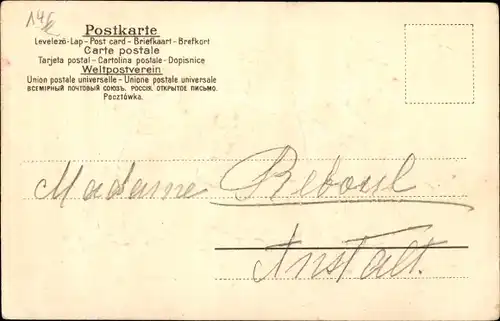 Postkarte
Levelező-Lap - Post card - Briefkaart - Brefkort
Carte postale
Tarjeta postal - Cartolina postale - Dopisnice
Weltpostverein
Union postale universelle - Unione postale universale
ВСЕМІРНЫЙ ПОЧТОВЫЙ СОЮЗЪ. РОССІЯ. ОТКРЫТОЕ ПИСЬМО.
Pocztówka.
Madame Reboul
Anstalt.